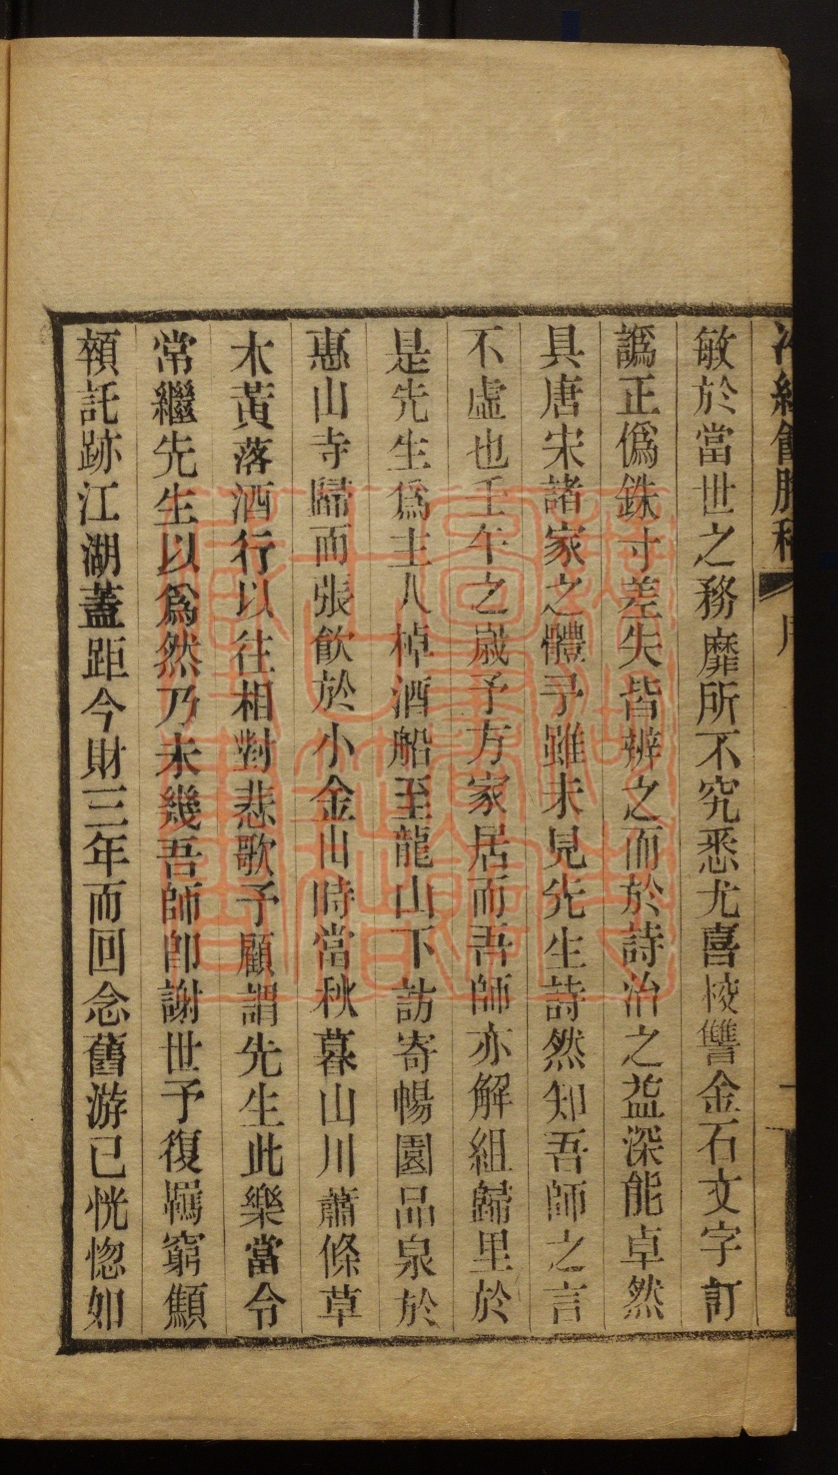 敏於當世之務靡所不究悉尤喜校讐金石文字訂
譌正僞銖寸差失皆辨之而於詩治之益深能卓然
具唐宋諸家之體予雖未見先生詩然知吾師之言
不虛也壬午之歲予方家居而吾師亦解組歸里於
是先生爲主人棹酒船至龍山下訪寄暢園品泉於
惠山寺歸而張飲於小金山時當秋暮山川蕭條草
木黃落酒行以往相對悲歌予顧謂先生此樂當令
常繼先生以爲然乃未幾吾師卽謝世予復羈窮顦
顇託跡江湖蓋距今財三年而回念舊游已恍惚如